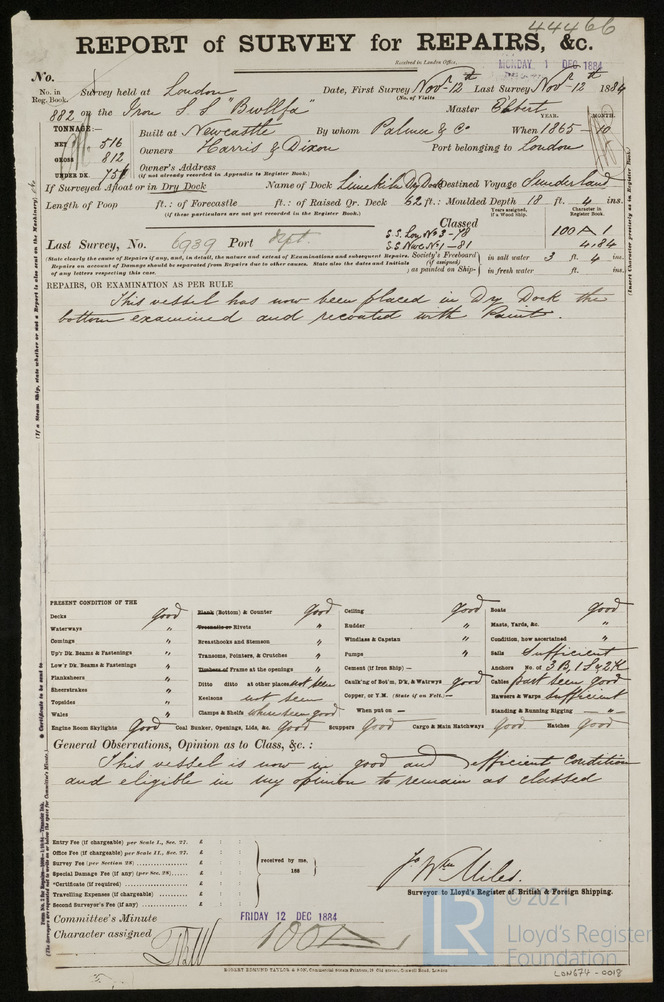 44466
REPORT of SURVEY for REPAIRS, &c.
Received in London Office,
MONDAY 1 DEC 1884
No.
No. in Reg. Book. Survey held at London Date, First Survey Novr 12th Last Survey Novr 12th 1884
(No. of Visits
882 on the Iron S.S "Bwllfa" Master
TONNAGE:—
YEAR. MONTH.
NET 516 Built at Newcastle By whom Palmer & Co When 1865 - 10
GROSS 812 Owners Harris & Dixon Port belonging to London
UNDER DK. 754 Owner's Address
(if not already recorded in Appendix to Register Book.)
If Surveyed Afloat or in Dry Dock Name of Dock Limekiln Dry Dock Destined Voyage Sunderland
Length of Poop ft.: of Forecastle ft.: of Raised Qr. Deck 62 ft.: Moulded Depth 18 ft. 4 ins.
(if these particulars are not yet recorded in the Register Book.)
Classed
Years assigned, if a Wood Ship. Character in Register Book.
S.S. Lon No 3 - 78 100 A 1
Last Survey, No. 6939 Port Npt. S.S. Nwc No 1 - 81 4.84
(State clearly the cause of Repairs if any, and, in detail, the nature and extent of Examinations and subsequent Repairs.
Repairs on account of Damage should be separated from Repairs due to other causes. State also the dates and Initials
of any letters respecting this case.
Society's Freeboard (if assigned) as painted on Ship— in salt water 3 ft. 4 ins.
in fresh water ft. ins.
REPAIRS, OR EXAMINATION AS PER RULE
This vessel has now been placed in Dry Dock the
bottom examined and recoated with Paint.
PRESENT CONDITION OF THE
Decks good
Waterways "
Comings "
Up'r Dk. Beams & Fastenings "
Low'r Dk. Beams & Fastenings "
Planksheers "
Sheerstrakes "
Topsides "
Wales "
Engine Room Skylights Good
Plank (Bottom) & Counter good
Treenails or Rivets "
Breasthooks and Stemson "
Transoms, Pointers, & Crutches "
Timbers of Frame at the openings "
Ditto ditto at other places not seen
Keelsons not seen
Clamps & Shelfs where seen good
Coal Bunker, Openings, Lids, &c. good
Ceiling good
Rudder "
Windlass & Capstan "
Pumps "
Cement (if Iron Ship) —
Caulk'ng of Bot'm, D'k, & Watrwys good
Copper, or Y.M. (State if on Felt.) —
When put on —
Scuppers Good
Cargo & Main Hatchways Good
Boats good
Masts, Yards, &c. "
Condition, how ascertained "
Sails Sufficient
Anchors No. of 3 B, 1 S & 2 K
Cables part seen good
Hawsers & Warps sufficient
Standing & Running Rigging "
Hatches Good
General Observations, Opinion as to Class, &c.:
This vessel is now in good and efficient condition
and eligible in my opinion to remain as classed
Entry Fee (if chargeable) per Scale I., Sec. 27. £
Office Fee (if chargeable) per Scale II., Sec. 27. £
Survey Fee (per Section 28) £
Special Damage Fee (if any) (per Sec. 28) £
*Certificate (if required) £
Travelling Expenses (if chargeable) £
Second Surveyor's Fee (if any) £
received by me,
188
Jo Wm Miles.
Surveyor to Lloyd's Register of British & Foreign Shipping.
Committee's Minute FRIDAY 12 DEC 1884
Character assigned 100A1
ROBERT EDMUND TAYLOR & SON, Commercial Steam Printers, 19 Old street, Goswell Road, London
LON674-0018
© 2021
LR
Lloyd's Register
Foundation